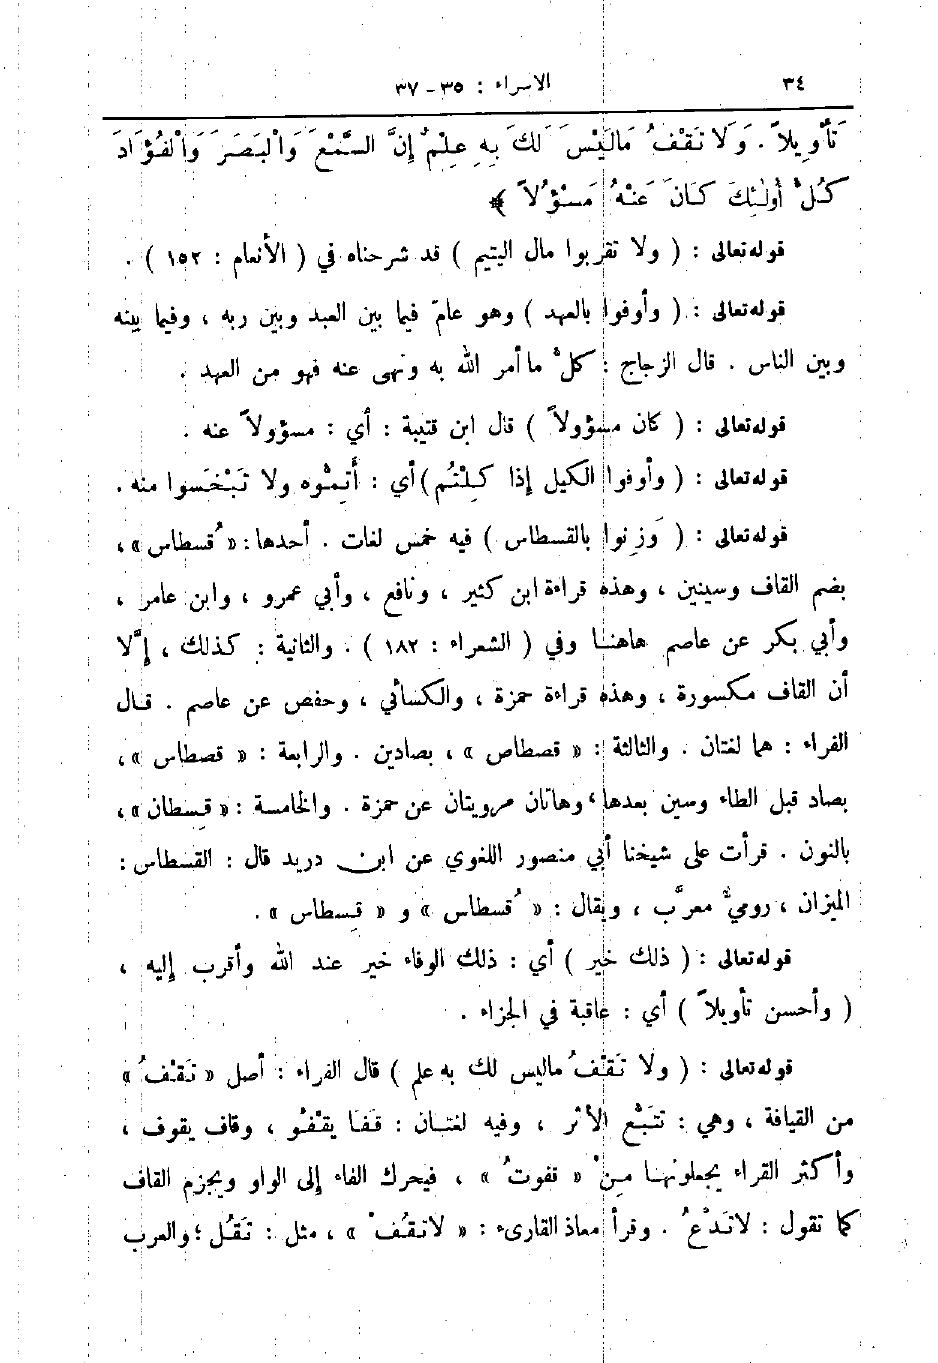 ٣٤ الاسراء : ٣٥ - ٣٧
تَأْوِيلاً . وَلَا تَقْفُ مَالَيْسَ لَكَ بِهِ عِلْمٌ إِنَّ السَّمْعَ وَالْبَصَرَ وَالْفُؤَادَ
كُلُّ أُولَٰئِكَ كَانَ عَنْهُ مَسْؤُلاً ﴾
قوله تعالى : ( ولا تقربوا مال اليتيم ) قد شرحناه في ( الأنعام : ١٥٢ ) .
قوله تعالى : ( وأوفوا بالعهد ) وهو عامّ فيما بين العبد وبين ربه ، وفيما بينه
وبين الناس . قال الزجاج : كلُّ ما أمر الله به ونهى عنه فهو من العهد .
قوله تعالى : ( كان مسؤولاً ) قال ابن قتيبة : أي : مسؤولاً عنه .
قوله تعالى : ( وأوفوا الكيل إذا كِلْتُم ) أي : أَتِمُّوه ولا تَبْخَسوا منه .
قوله تعالى : ( وَزِنوا بالقسطاس ) فيه خمس لغات . أحدها : « قُسطاس » ،
بضم القاف وسينين ، وهذه قراءة ابن كثير ، ونافع ، وأبي عمرو ، وابن عامر ،
وأبي بكر عن عاصم هاهنا وفي ( الشعراء : ١٨٢ ) . والثانية : كذلك ، إلَّا
أن القاف مكسورة ، وهذه قراءة حمزة ، والكسائي ، وحفص عن عاصم . قال
الفراء : هما لغتان . والثالثة : « قصطاص » ، بصادين . والرابعة : « قصطاس » ،
بصاد قبل الطاء وسين بعدها ، وهاتان مرويتان عن حمزة . والخامسة : « قِسطان » ،
بالنون . قرأت على شيخنا أبي منصور اللغوي عن ابن دريد قال : القسطاس :
الميزان ، روميٌّ معرَّب ، ويقال : « قُسطاس » و « قِسطاس » .
قوله تعالى : ( ذلك خير ) أي : ذلك الوفاء خير عند الله وأقرب إليه ،
( وأحسن تأويلاً ) أي : عاقبة في الجزاء .
قوله تعالى : ( ولا تَقْفُ ماليس لك به علم ) قال الفراء : أصل « تَقْفُ »
من القيافة ، وهي : تتبُّع الأثر ، وفيه لغتان : قَفَا يقفُو ، وقاف يقوف ،
وأكثر القراء يجعلونها مِنْ « قفوتُ » ، فيحرك الفاء إلى الواو ويجزم القاف
كما تقول : لاتَدْعُ . وقرأ معاذ القارىء : « لاتَقُفْ » ، مثل : تَقُل ؛ والعرب